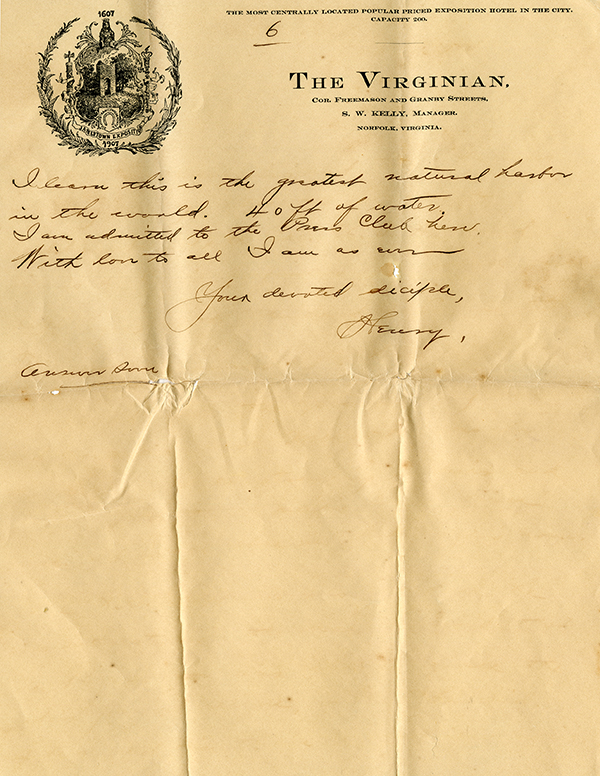 THE MOST CENTRALLY LOCATED POPULAR PRICED EXPOSITION HOTEL IN THE CITY.
CAPACITY 200.
6
1607
JAMESTOWN EXPOSITION
1907
THE VIRGINIAN,
COR. FREEMASON AND GRANBY STREETS,
S. W. KELLY, MANAGER.
NORFOLK, VIRGINIA.
I learn this is the greatest natural harbor
in the world. 40 ft of water.
I am admitted to the Press Club here.
With love to all I am as ever
Your devoted diciple,
Henry,
Answer soon